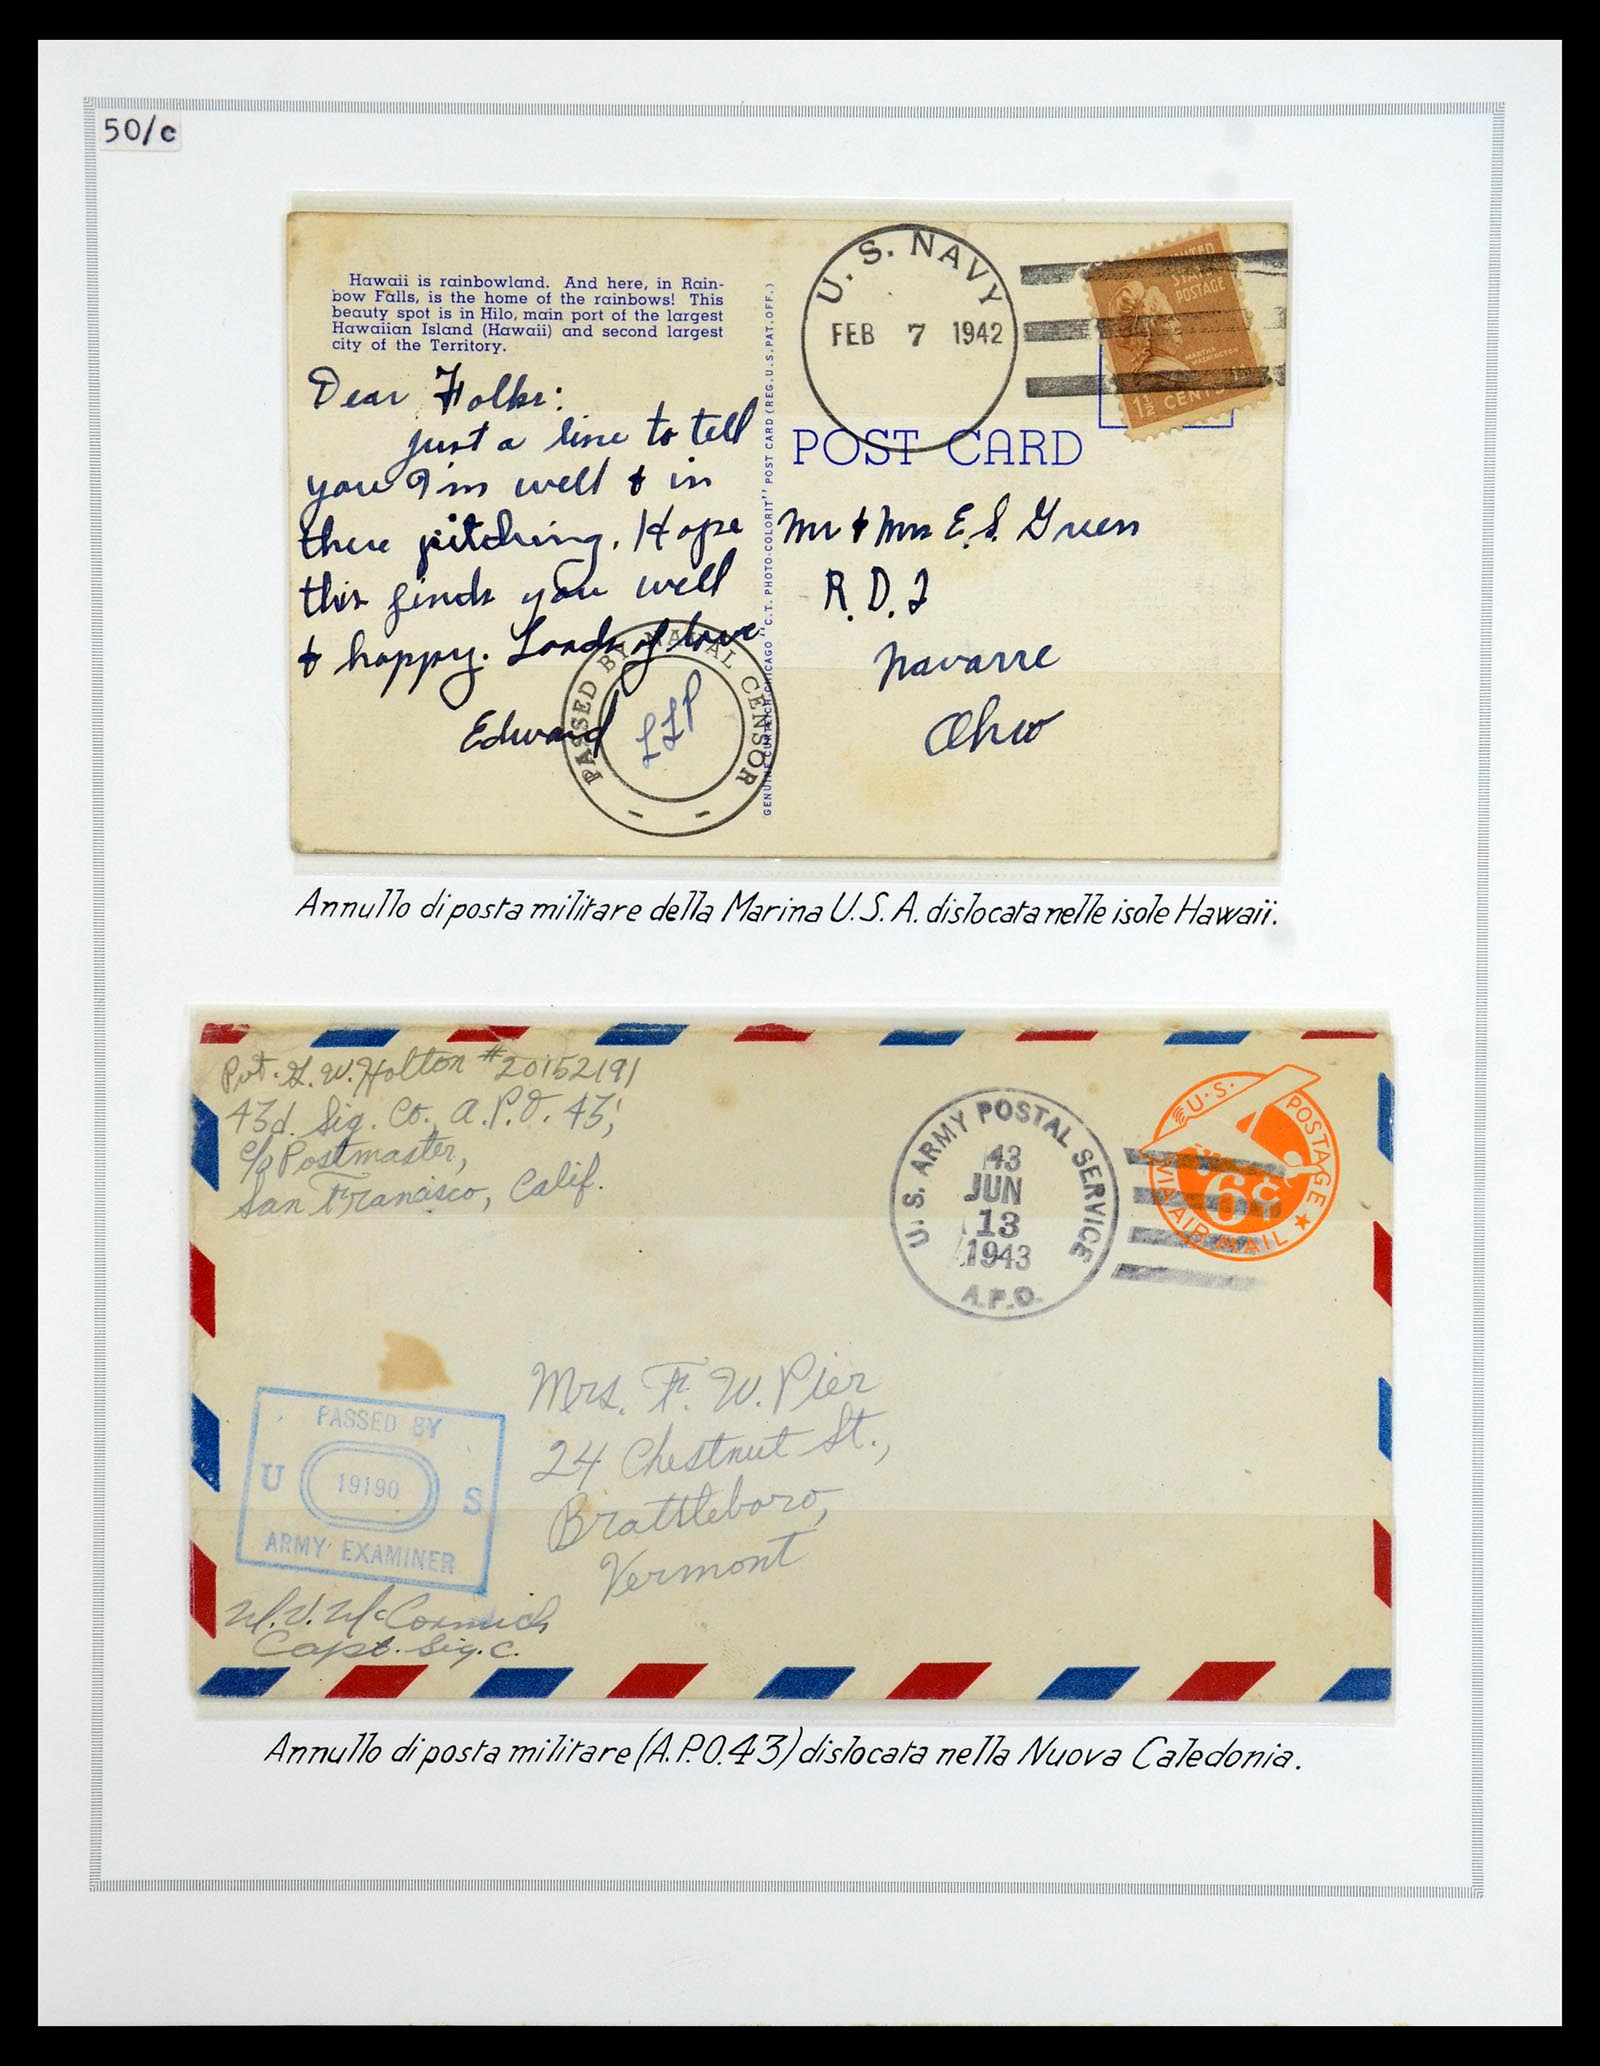 50/c
Hawaii is rainbowland. And here, in Rain-
bow Falls, is the home of the rainbows! This
beauty spot is in Hilo, main port of the largest
Hawaiian Island (Hawaii) and second largest
city of the Territory.
Dear Folks:
Just a line to tell
you I'm well & in
there pitching. Hope
this finds you well
& happy. Loads of love
Edward
PASSED BY NAVAL CENSOR
LLP
GENUINE CURTEICH-CHICAGO "C.T. PHOTO-COLORIT" POST CARD (REG. U.S. PAT. OFF.)
U. S. NAVY
FEB 7 1942
UNITED
STATES
POSTAGE
MARTHA
WASHINGTON
1½ CENTS
POST CARD
Mr & Mrs E. S. Green
R. D. 2
Navarre
Ohio
Annullo di posta militare della Marina U. S. A. dislocata nelle isole Hawaii.
Pvt. G. W. Holton #20152191
43d. Sig. Co., A.P.O. 43,
c/o Postmaster,
San Francisco, Calif.
U. S. ARMY POSTAL SERVICE
43
JUN
13
1943
A.P.O.
U.S. POSTAGE
6¢
VIA AIR MAIL
Mrs. F. W. Pier
24 Chestnut St.,
Brattleboro,
Vermont
PASSED BY
U 19190 S
ARMY EXAMINER
W. V. McCormick
Capt. Sig. C.
Annullo di posta militare (A.P.O. 43) dislocata nella Nuova Caledonia.